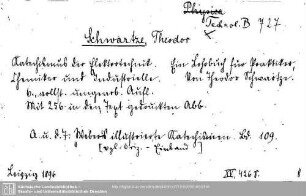 Physica
Technol. B 727
Schwartze, Theodor
Katechismus der Elektrotechnik. Ein Lehrbuch für Praktiker,
Chemiker und Industrielle. Von Theodor Schwartze.
6., vollst. umgearb. Aufl.
Mit 256 in den Text gedruckten Abb.
A. u. d. T.: Webers illustrierte Katechismen. Bd. 109.
[vgl. Orig.-Einband]
Leipzig 1896
XII, 426 S. 8°